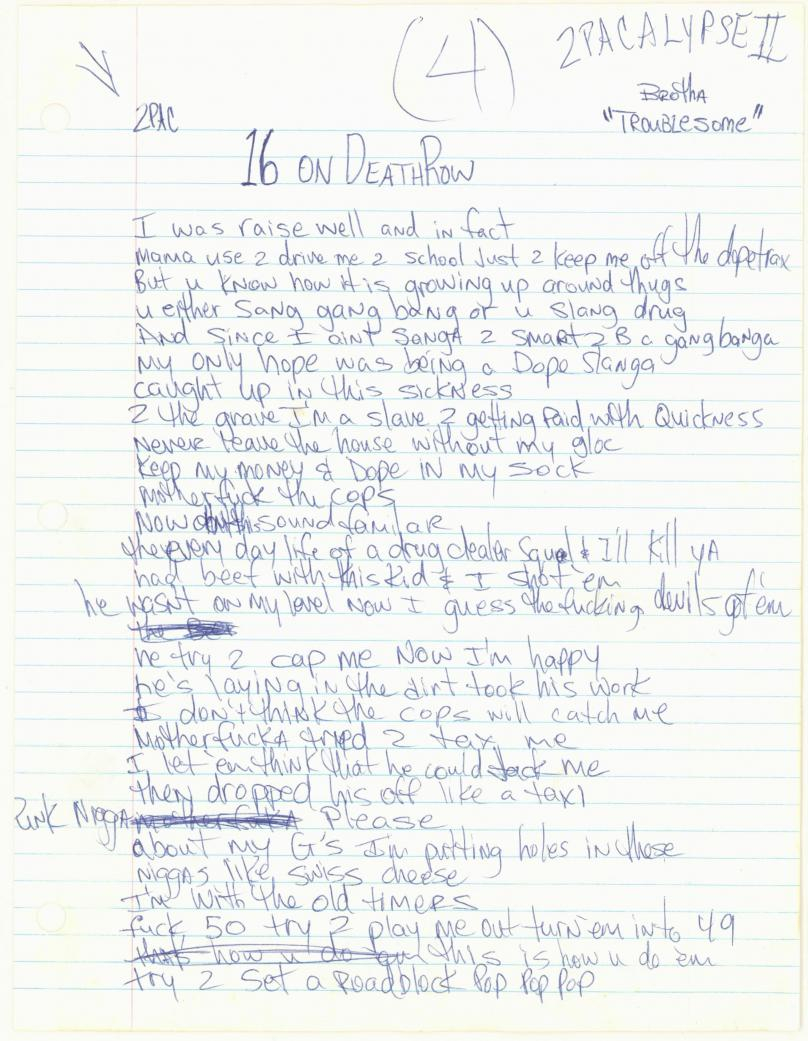 (4)
2PACALYPSE II
BROTHA
"TROUBLESOME"
2PAC
16 ON DEATHROW
I was raise well and in fact
mama use 2 drive me 2 school Just 2 keep me off the dopetrax
But u know how it is growing up around thugs
u either Sang gang bang or u slang drug
And Since I aint SangA 2 smart 2 B a gangbanga
my only hope was being a Dope Slanga
caught up in this sickness
2 the grave I'm a slave 2 getting paid with Quickness
Never leave the house without my gloc
Keep my money & Dope IN my sock
motherfuck the cops
Now SOUND familAR
the every day life of a drug dealer & I'll kill yA
had beef with this kid & I shot 'em
he wasnt on my level Now I guess the fucking devils got 'em
he try 2 cap me Now I'm happy
he's laying in the dirt took his work
I don't think the cops will catch me
MotherfuckA tried 2 tax me
I let 'em think that he could jack me
then dropped his off like a taxi
Punk NiggA Please
about my G's I'm putting holes in these
niggas like swiss cheese
I'm with the old timers
fuck 50 try 2 play me out turn 'em into 49
thats how u do em this is how u do 'em
try 2 Set a Roadblock Pop Pop Pop